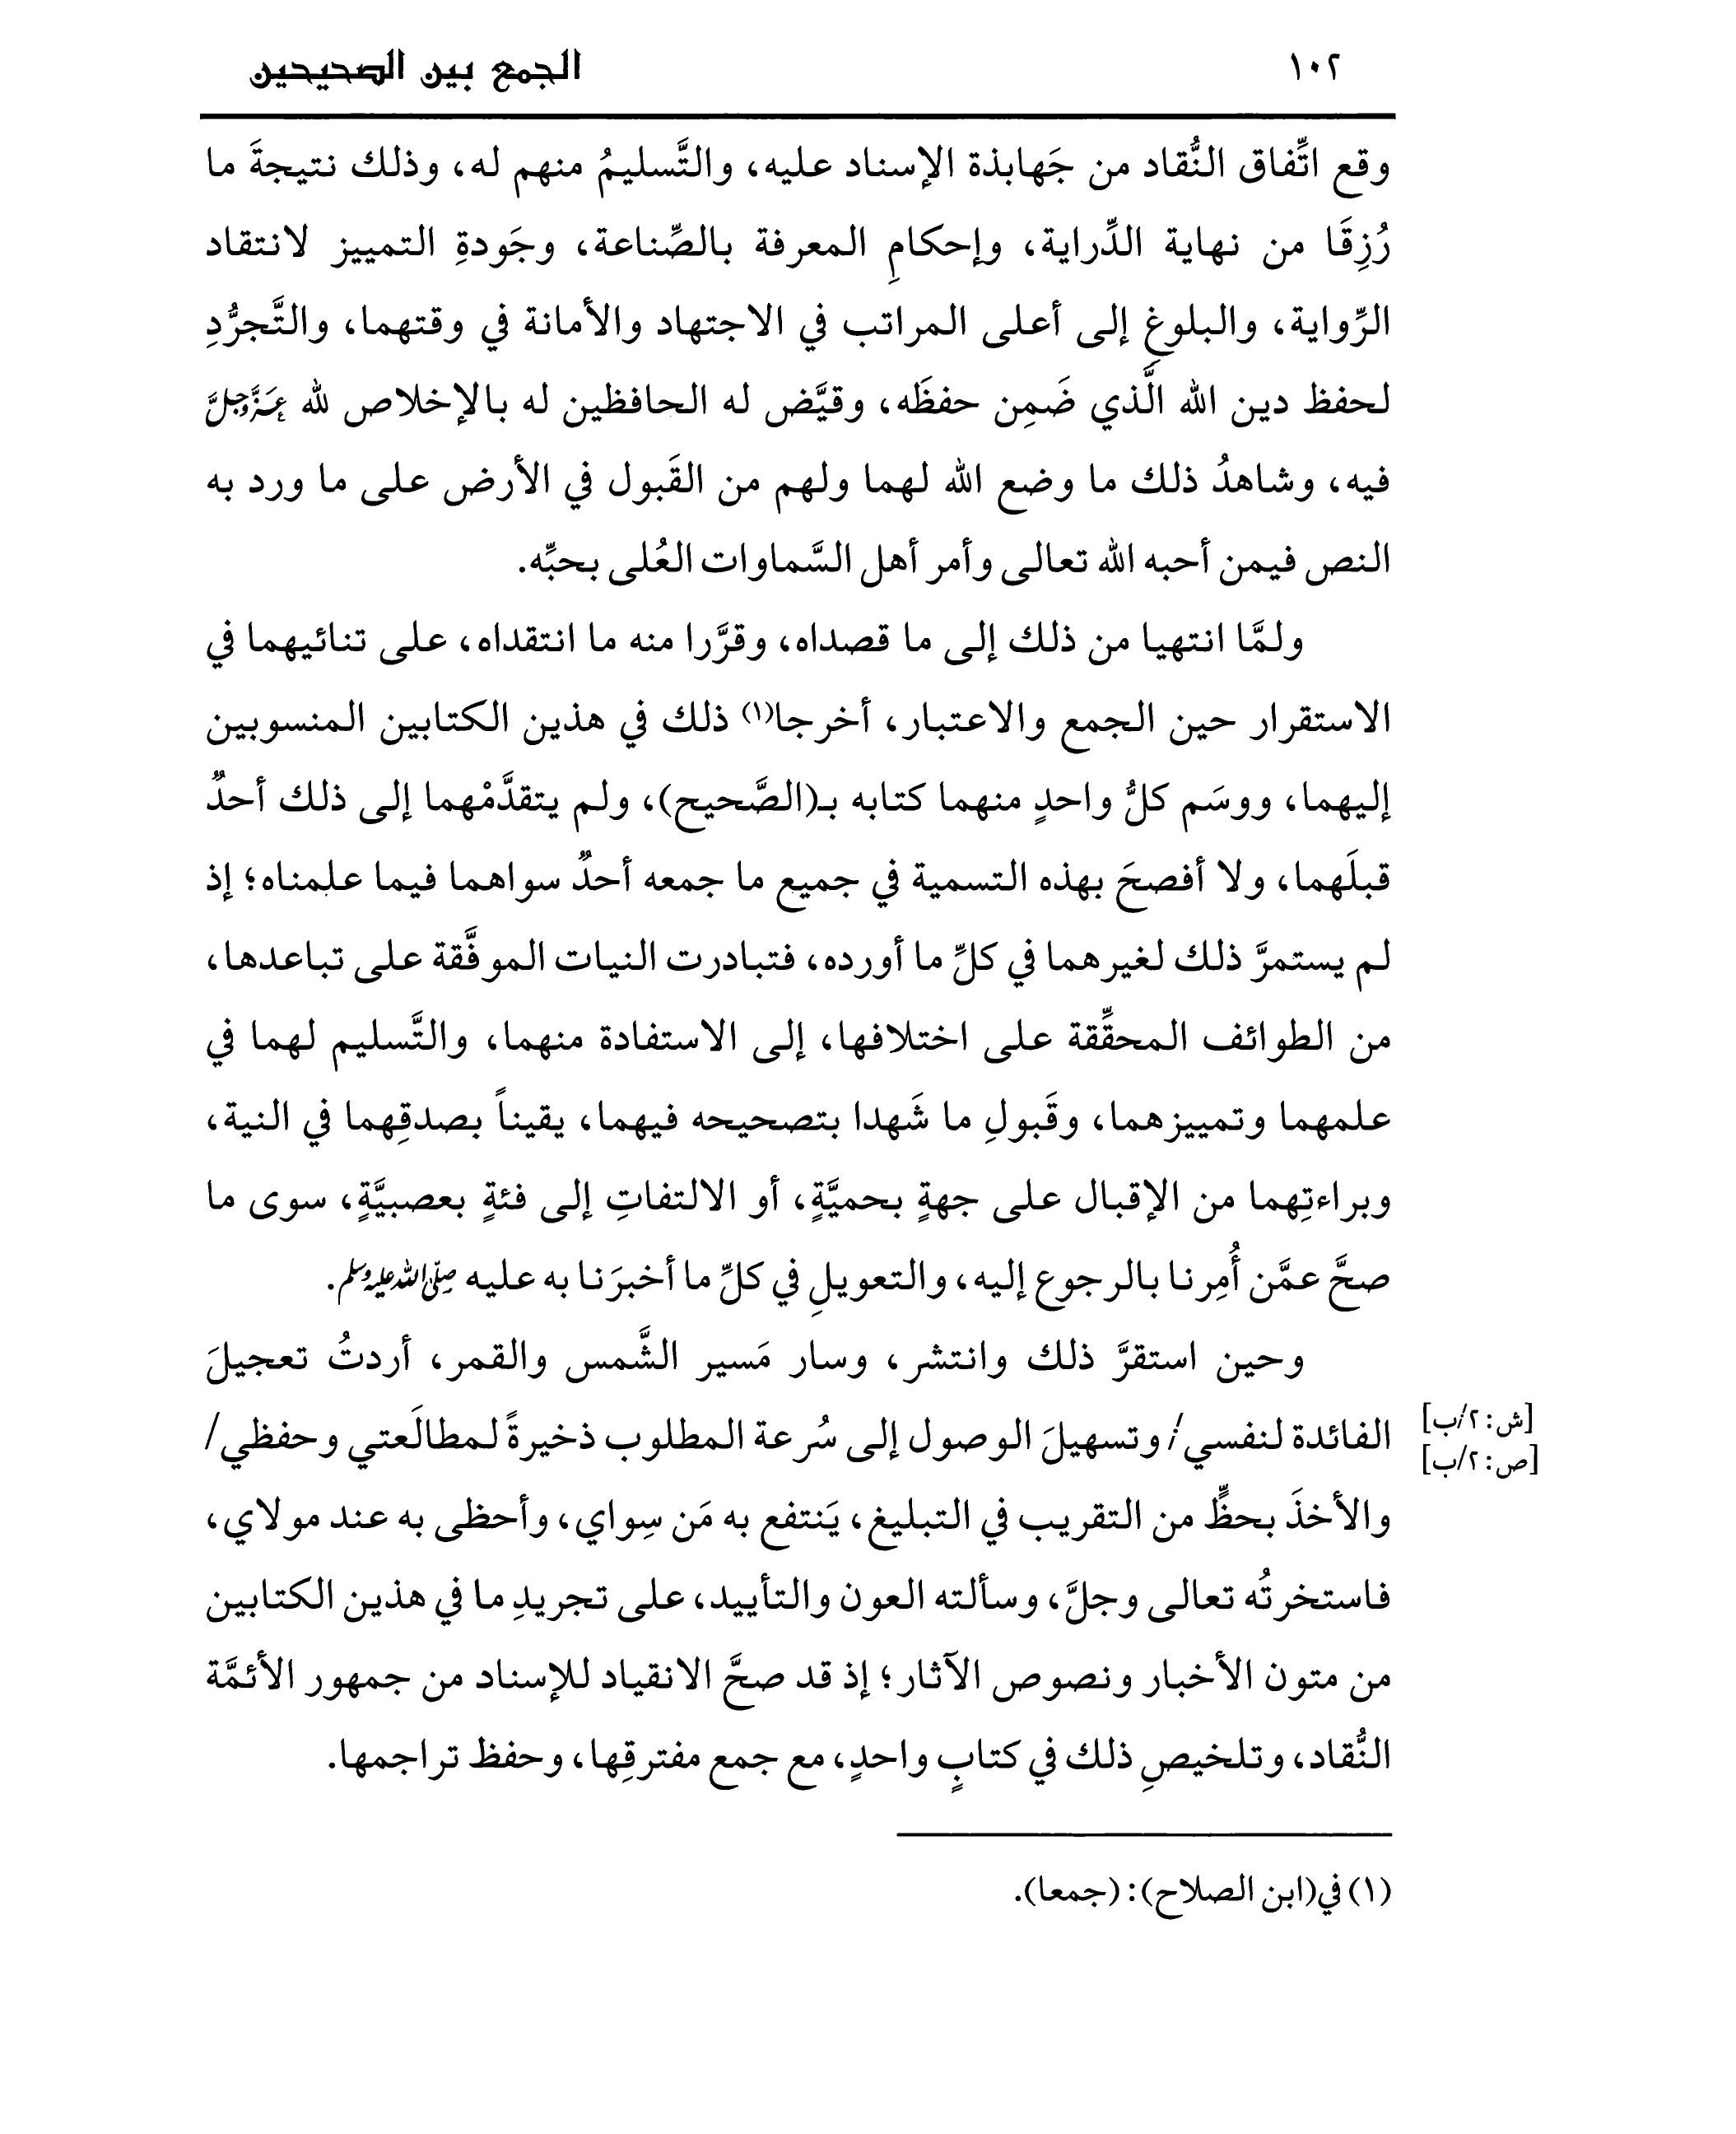 ١٠٢ الجمع بين الصحيحين
وقع اتِّفاق النُّقاد من جَهابذة الإسناد عليه، والتَّسليمُ منهم له، وذلك نتيجةَ ما
رُزِقَا من نهاية الدِّراية، وإحكامِ المعرفة بالصِّناعة، وجَودةِ التمييز لانتقاد
الرِّواية، والبلوغِ إلى أعلى المراتب في الاجتهاد والأمانة في وقتهما، والتَّجرُّدِ
لحفظ دين الله الَّذي ضَمِن حفظَه، وقيَّض له الحافظين له بالإخلاص لله عَزَّوَجَلَّ
فيه، وشاهدُ ذلك ما وضع الله لهما ولهم من القَبول في الأرض على ما ورد به
النص فيمن أحبه الله تعالى وأمر أهل السَّماوات العُلى بحبِّه.
ولمَّا انتهيا من ذلك إلى ما قصداه، وقرَّرا منه ما انتقداه، على تنائيهما في
الاستقرار حين الجمع والاعتبار، أخرجا(١) ذلك في هذين الكتابين المنسوبين
إليهما، ووسَم كلُّ واحدٍ منهما كتابه بـ(الصَّحيح)، ولم يتقدَّمْهما إلى ذلك أحدٌ
قبلَهما، ولا أفصحَ بهذه التسمية في جميع ما جمعه أحدٌ سواهما فيما علمناه؛ إذ
لم يستمرَّ ذلك لغيرهما في كلِّ ما أورده، فتبادرت النيات الموفَّقة على تباعدها،
من الطوائف المحقِّقة على اختلافها، إلى الاستفادة منهما، والتَّسليم لهما في
علمهما وتمييزهما، وقَبولِ ما شَهدا بتصحيحه فيهما، يقيناً بصدقِهما في النية،
وبراءتِهما من الإقبال على جهةٍ بحميَّةٍ، أو الالتفاتِ إلى فئةٍ بعصبيَّةٍ، سوى ما
صحَّ عمَّن أُمِرنا بالرجوع إليه، والتعويلِ في كلِّ ما أخبرَنا به عليه صلى الله عليه وسلم.
وحين استقرَّ ذلك وانتشر، وسار مَسير الشَّمس والقمر، أردتُ تعجيلَ
الفائدة لنفسي/ وتسهيلَ الوصول إلى سُرعة المطلوب ذخيرةً لمطالَعتي وحفظي/
[ش:٢/ب]
[ص:٢/ب]
والأخذَ بحظٍّ من التقريب في التبليغ، يَنتفع به مَن سِواي، وأحظى به عند مولاي،
فاستخرتُه تعالى وجلَّ، وسألته العون والتأييد، على تجريدِ ما في هذين الكتابين
من متون الأخبار ونصوص الآثار؛ إذ قد صحَّ الانقياد للإسناد من جمهور الأئمَّة
النُّقاد، وتلخيصِ ذلك في كتابٍ واحدٍ، مع جمع مفترقِها، وحفظ تراجمها.
(١) في (ابن الصلاح): (جمعا).